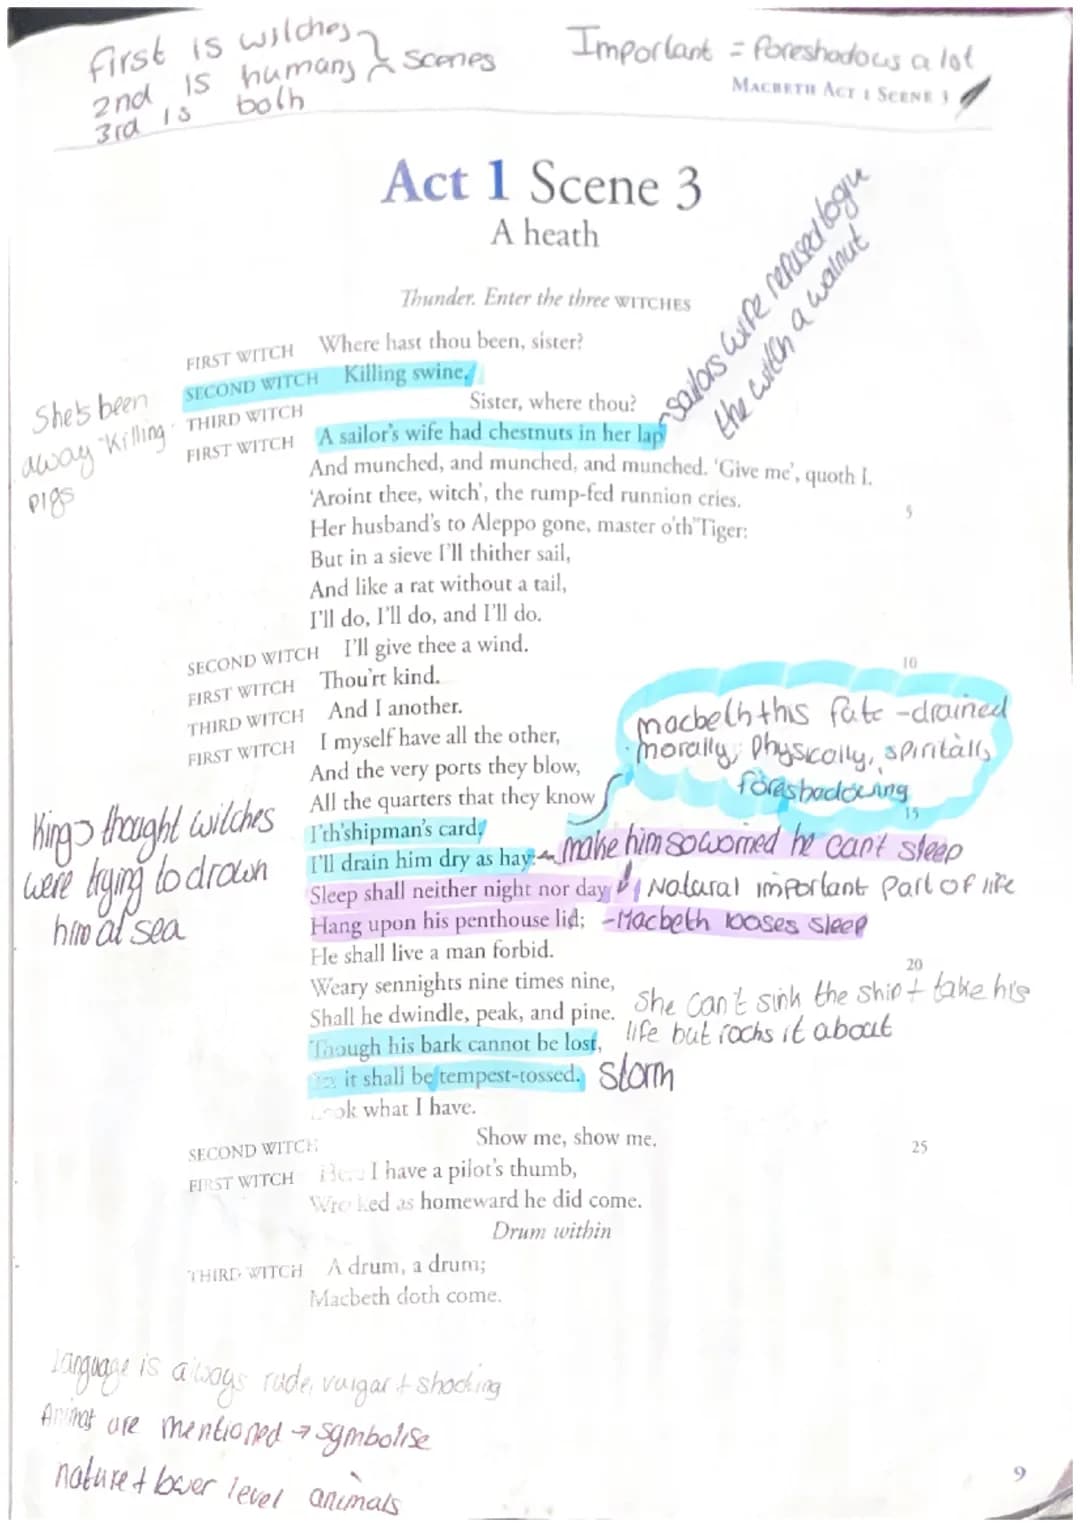 first is witches
2nd is humans } scenes
3rd is both
Important = foreshadows a lot
MACBETH ACT 1 SCENE 3
Act 1 Scene 3
A heath
Thunder. Enter the three WITCHES
FIRST WITCH Where hast thou been, sister?
SECOND WITCH Killing swine.
THIRD WITCH Sister, where thou?
FIRST WITCH A sailor's wife had chestnuts in her lap
sailors wife refused to give
the witch a walnut
She's been
away "Killing
pigs
And munched, and munched, and munched. 'Give me', quoth I.
'Aroint thee, witch', the rump-fed runnion cries.
5
Her husband's to Aleppo gone, master o'th'Tiger:
But in a sieve I'll thither sail,
And like a rat without a tail,
I'll do, I'll do, and I'll do.
SECOND WITCH I'll give thee a wind.
10
FIRST WITCH Thou'rt kind.
THIRD WITCH And I another.
FIRST WITCH I myself have all the other,
And the very ports they blow,
All the quarters that they know
15
I'th'shipman's card,
macbeth this fate - drained
morally, Physically, spiritally
foreshadowing
I'll drain him dry as hay: make him so worried he can't sleep
Sleep shall neither night nor day Natural important part of life
Hang upon his penthouse lid; - Macbeth looses sleep
King thought witches
were trying to drown
him at sea
He shall live a man forbid.
20
Weary sennights nine times nine,
Shall he dwindle, peak, and pine.
She can't sink the ship + take his
life but rocks it about
Though his bark cannot be lost,
it shall be tempest-tossed. storm
what I have.
SECOND WITCH Show me, show me.
25
FIRST WITCH I have a pilot's thumb,
Wrecked as homeward he did come.
Drum within
THIRD WITCH A drum, a drum;
Macbeth doth come.
Language is always rude, vulgar + shocking
are mentioned → symbolise
nature + lower level animals
9